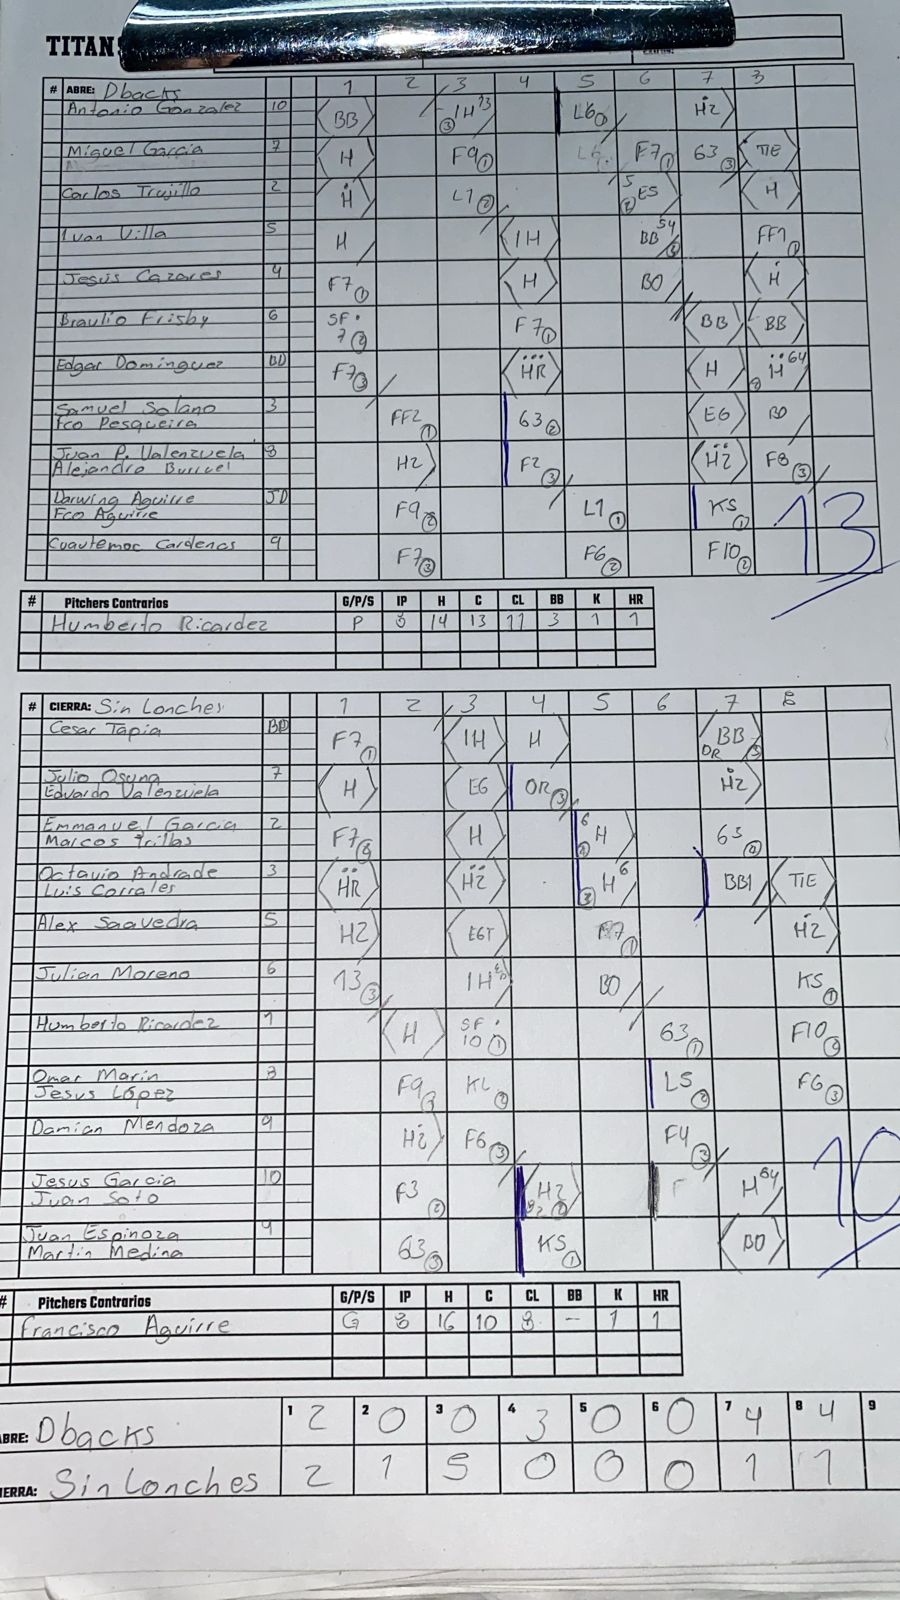 TITAN
# ABRE: Dbacks 1 2 3 4 5 6 7 8
Antonio Gonzalez 10 BB 1H 13 3 L6 H2
Miguel Garcia 7 H F9 1 F7 1 63 3 TIE
Carlos Trujillo 2 H L1 2 5 E5 2 H
Ivan Villa 5 H 1H BB 54 3 FF1 1
Jesus Cazares 4 F7 1 H BO H
Braulio Frisby 6 SF 7 2 F7 1 BB BB
Edgar Dominguez BD F7 3 HR H H 64 2
Samuel Solano 3 FF2 1 63 2 E6 BO
Fco Pesqueira
Juan P. Valenzuela 8 H2 F2 3 H2 F8 3
Alejandro Burruel
Darwing Aguirre JD F9 2 L1 1 KS 1
Fco Aguirre
Cuautemoc Cardenas 9 F7 3 F6 2 F10 2
13
# Pitchers Contrarios G/P/S IP H C CL BB K HR
Humberto Ricardez P 8 14 13 11 3 1 1
# CIERRA: Sin Lonches 1 2 3 4 5 6 7 8
Cesar Tapia BD F7 1 1H H BB OR 3
Julio Osuna 7 H E6 OR 3 H2
Eduardo Valenzuela
Emmanuel Garcia 2 F7 2 H 6 H 63
Marcos Trillas
Octavio Andrade 3 HR H2 H 6 3 BB1 TIE
Luis Corrales
Alex Saavedra 5 H2 E6T F7 1 H2
Julian Moreno 6 13 3 1H BO KS 1
Humberto Ricardez 1 H SF 10 1 63 1 F10 2
Omar Marin 8 F9 KL 2 L5 2 F6 3
Jesus López
Damian Mendoza 9 H2 F6 3 F4 3
Jesus Garcia 10 F3 2 H2 F H 64
Juan Soto
Juan Espinoza 4 63 3 KS 1 BO
Martin Medina
10
# Pitchers Contrarios G/P/S IP H C CL BB K HR
Francisco Aguirre G 8 16 10 8 — 1 1
ABRE: Dbacks 1 2 2 0 3 0 4 3 5 0 6 0 7 4 8 4 9
CIERRA: Sin Lonches 2 1 5 0 0 0 1 1